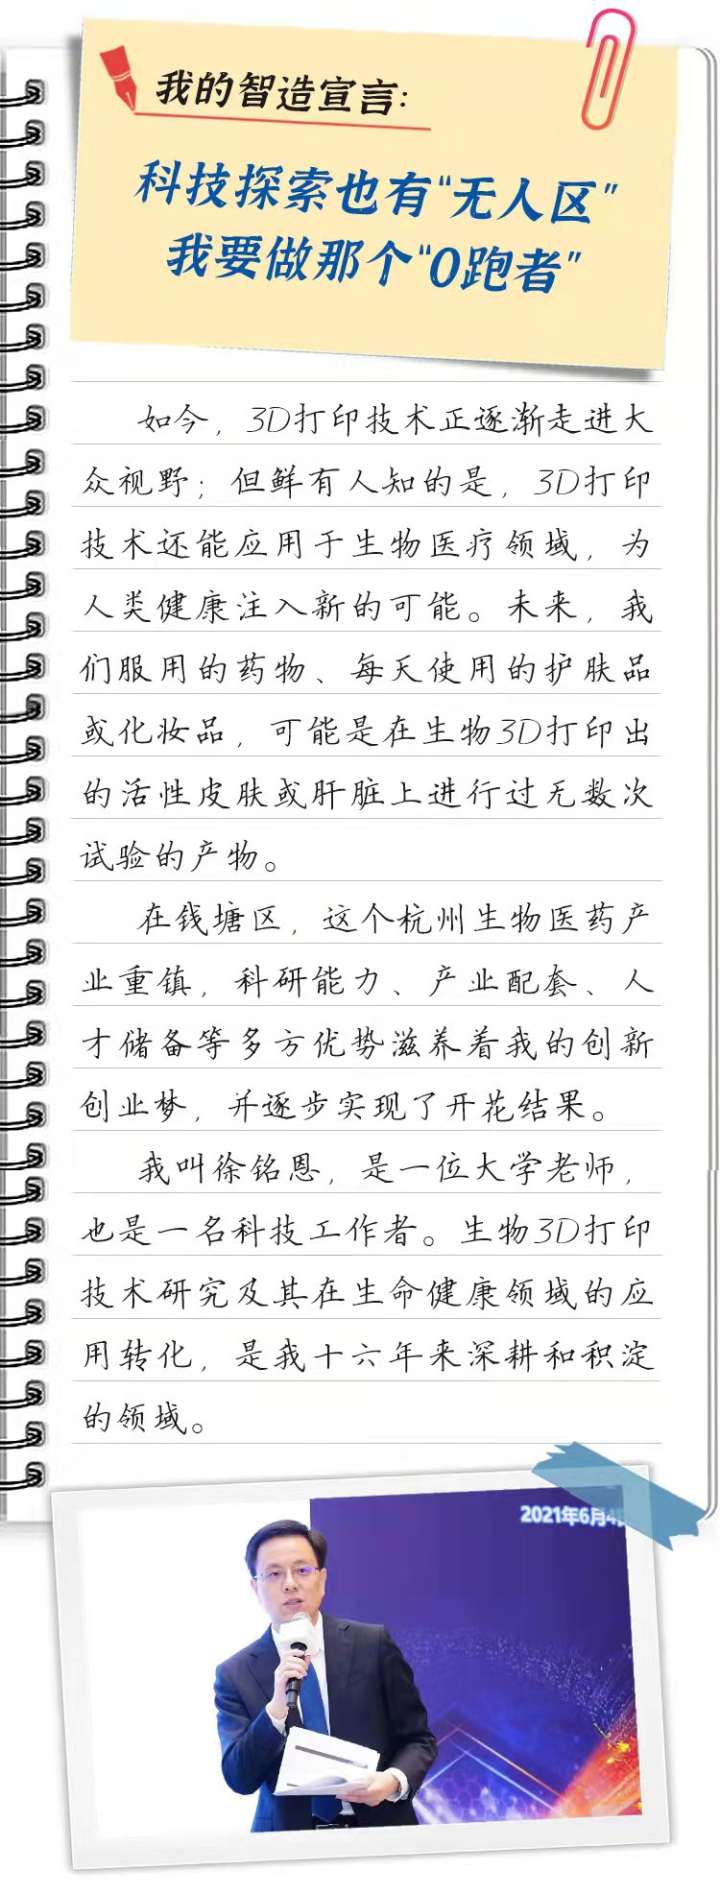 我的智造宣言:
科技探索也有“无人区”
我要做那个“0跑者”
如今，3D打印技术正逐渐走进大
众视野；但鲜有人知的是，3D打印
技术还能应用于生物医疗领域，为
人类健康注入新的可能。未来，我
们服用的药物、每天使用的护肤品
或化妆品，可能是在生物3D打印出
的活性皮肤或肝脏上进行过无数次
试验的产物。
在钱塘区，这个杭州生物医药产
业重镇，科研能力、产业配套、人
才储备等多方优势滋养着我的创新
创业梦，并逐步实现了开花结果。
我叫徐铭恩，是一位大学老师，
也是一名科技工作者。生物3D打印
技术研究及其在生命健康领域的应
用转化，是我十六年来深耕和积淀
的领域。
2021年6月4日